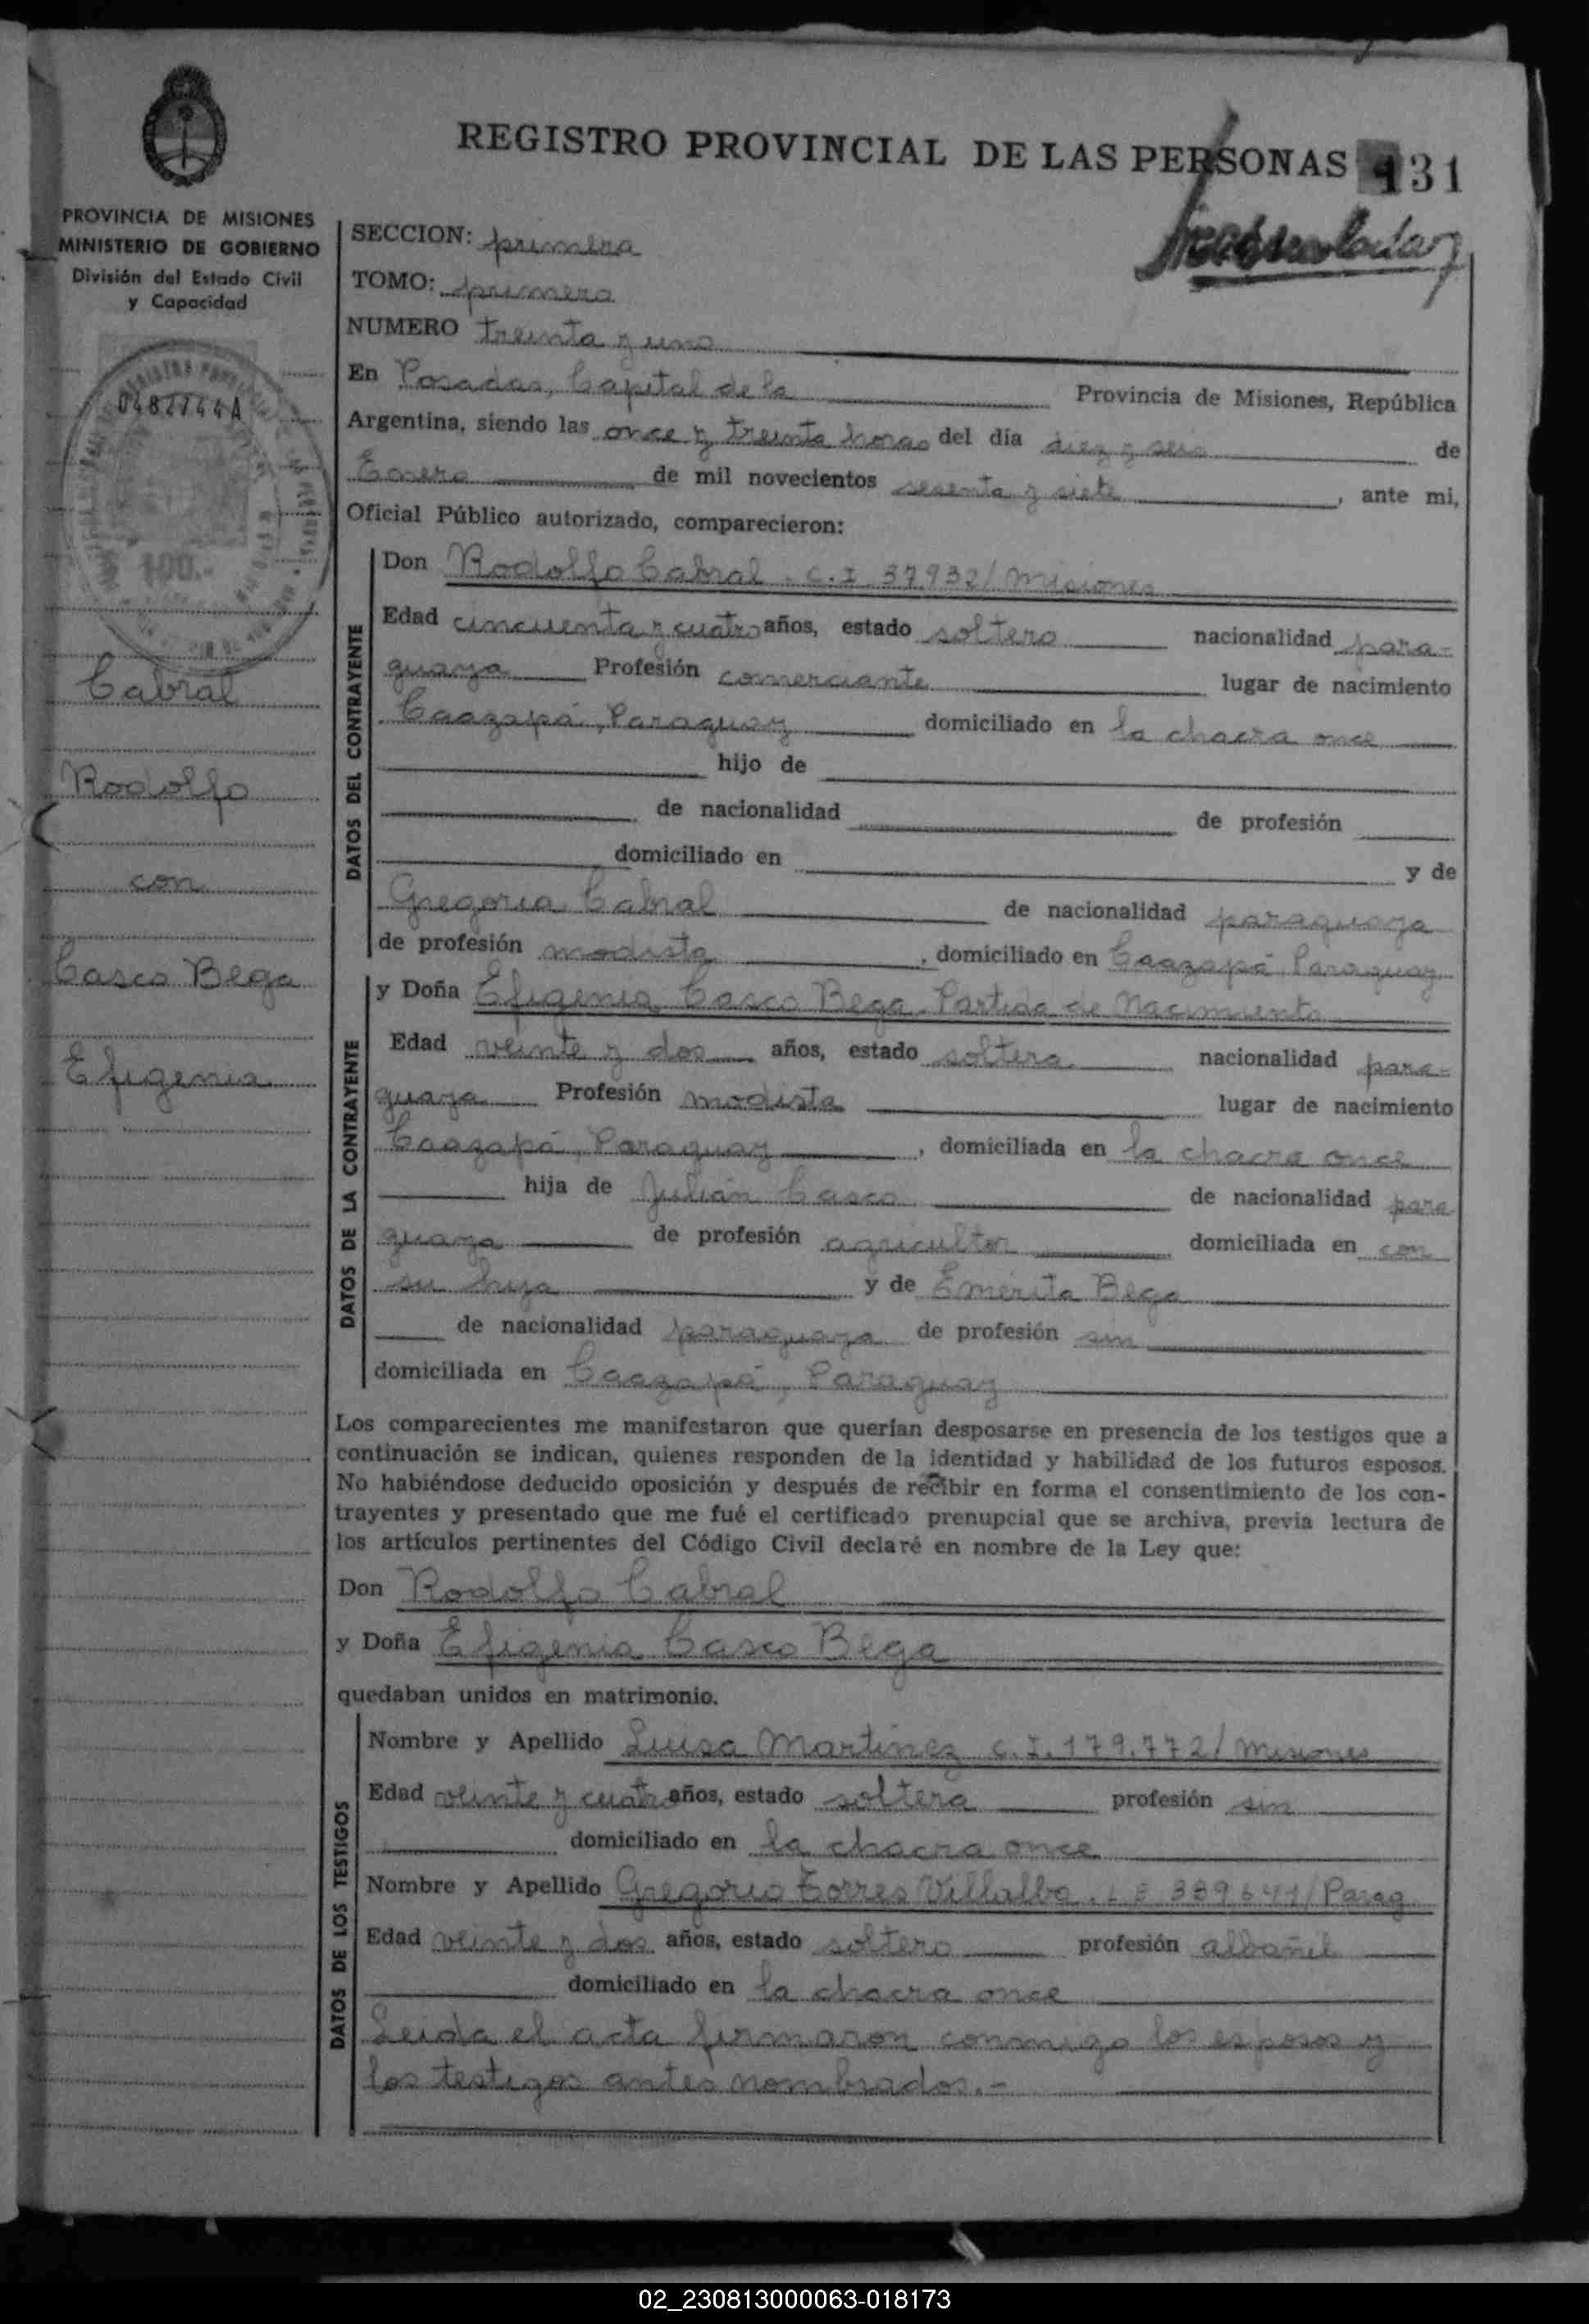 REGISTRO PROVINCIAL DE LAS PERSONAS 131
PROVINCIA DE MISIONES
MINISTERIO DE GOBIERNO
División del Estado Civil
y Capacidad
100.-
Cabral
Rodolfo
con
Casco Bega
Efigenia
SECCION: primera
TOMO: primero
NUMERO treinta y uno
En Posadas, Capital de la Provincia de Misiones, República
Argentina, siendo las once y treinta horas del día diez y seis de
Enero de mil novecientos sesenta y siete, ante mi,
Oficial Público autorizado, comparecieron:
DATOS DEL CONTRAYENTE
Don Rodolfo Cabral. C.I. 37.932/Misiones
Edad cincuenta y cuatro años, estado soltero nacionalidad para-
guaya Profesión comerciante lugar de nacimiento
Caazapá, Paraguay domiciliado en la chacra once
hijo de
de nacionalidad de profesión
domiciliado en y de
Gregoria Cabral de nacionalidad paraguaya
de profesión modista, domiciliado en Caazapá Paraguay
DATOS DE LA CONTRAYENTE
y Doña Efigenia Casco Bega. Partida de Nacimiento
Edad veinte y dos años, estado soltera nacionalidad para-
guaya Profesión modista lugar de nacimiento
Caazapá, Paraguay, domiciliada en la chacra once
hija de Julián Casco de nacionalidad para
guaya de profesión agricultor domiciliada en con
su hija y de Emérita Bega
de nacionalidad paraguaya de profesión sin
domiciliada en Caazapá, Paraguay
Los comparecientes me manifestaron que querían desposarse en presencia de los testigos que a
continuación se indican, quienes responden de la identidad y habilidad de los futuros esposos.
No habiéndose deducido oposición y después de recibir en forma el consentimiento de los con-
trayentes y presentado que me fué el certificado prenupcial que se archiva, previa lectura de
los artículos pertinentes del Código Civil declaré en nombre de la Ley que:
Don Rodolfo Cabral
y Doña Efigenia Casco Bega
quedaban unidos en matrimonio.
DATOS DE LOS TESTIGOS
Nombre y Apellido Luisa Martinez C.I. 179.772/Misiones
Edad veinte y cuatro años, estado soltera profesión sin
domiciliado en la chacra once
Nombre y Apellido Gregorio Torres Villalba. L E 339641/Parag
Edad veinte y dos años, estado soltero profesión albañil
domiciliado en la chacra once
Leida el acta firmaron conmigo los esposos y
los testigos antes nombrados.-
02_230813000063-018173